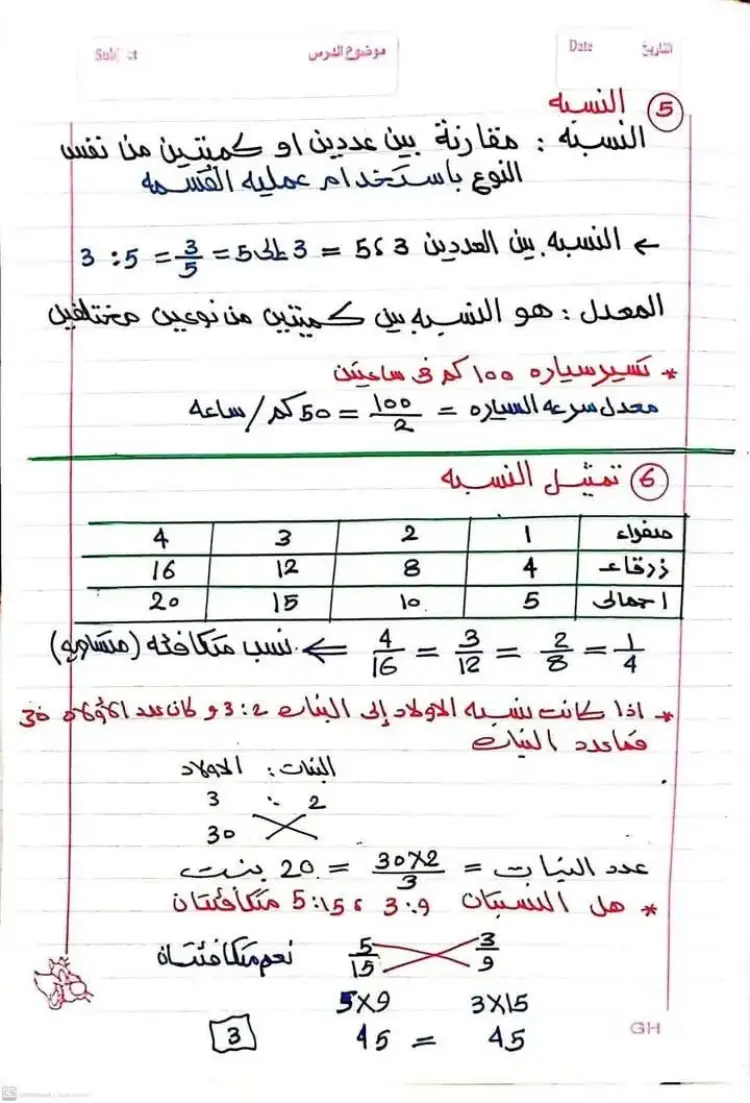 التاريخ Date موضوع الدرس
⑤ النسبه
النسبه : مقارنة بين عددين او كميتين من نفس
النوع باستخدام عمليه القسمه
← النسبه بين العددين 3 ، 5 = 3 إلى 5 = 3/5 = 3 : 5
المعدل : هو النسبه بين كميتين من نوعين مختلفين
* تسير سياره 100 كم فى ساعتين
معدل سرعه السياره = 100/2 = 50 كم / ساعه
⑥ تمثيل النسبه
صفراء 1 2 3 4
زرقاء 4 8 12 16
اجمالى 5 10 15 20
1/4 = 2/8 = 3/12 = 4/16 ⇐ نسب متكافئه (متساويه)
* اذا كانت نسبه الاولاد إلى البنات 3:2 و كان عدد الأولاد 30
فما عدد البنات
البنات : الاولاد
3 : 2
30
عدد البنات = 30×2/3 = 20 بنت
* هل النسبتان 3:9 ، 5:15 متكافئتان
3/9 5/15 نعم متكافئتان
3×15 5×9
45 = 45
3
GH